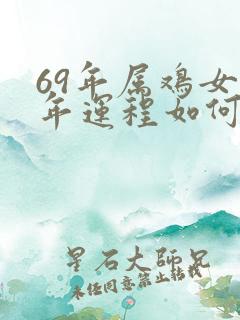 69年属鸡女
年運程如何
星石大師兄
未经同意禁止转载